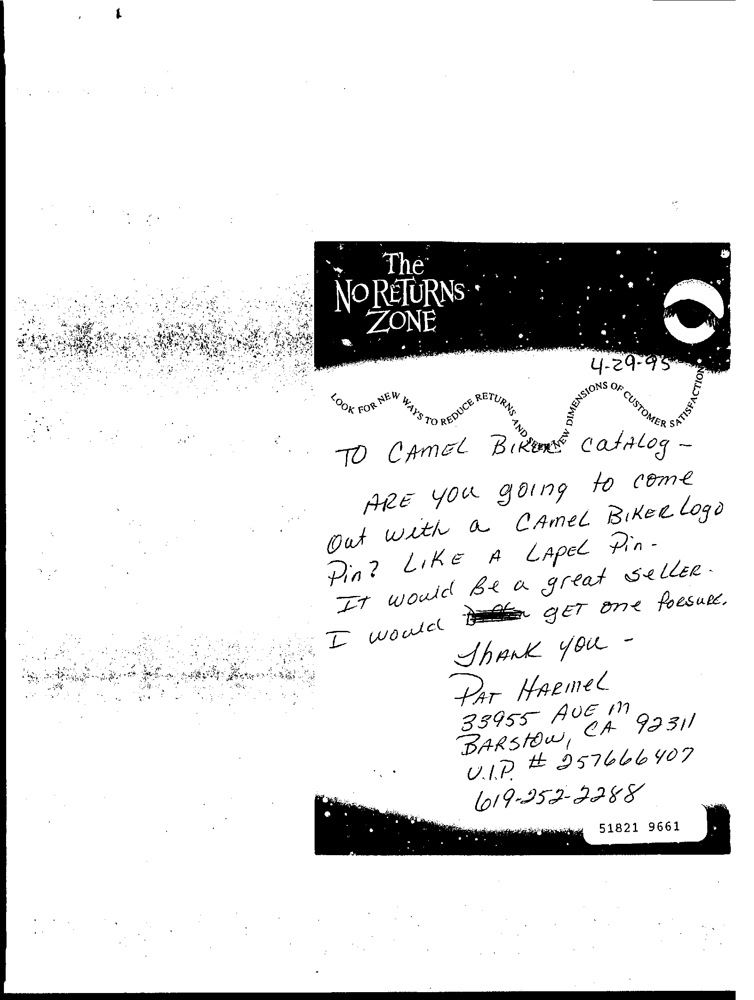 The
NO RETURNS
ZONE
4-29-95
LOOK FOR NEW WAYS TO REDUCE RETURNS AND NEW DIMENSIONS OF CUSTOMER SATISFACTION
TO CAMEL BIKER CATALOG -
ARE YOU going to come
Out with a CAMEL BIKER Logo
Pin? LIKE A LAPEL Pin-
IT would Be a great SELLER.
I would GET one FORSURE.
THANK YOU -
PAT HARMEL
33955 AVE M
BARSTOW, CA 92311
V.I.P. # 257666407
619-252-2288
51821 9661